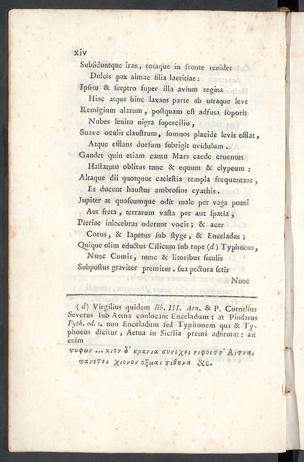 xiv
Subsiduntque irae, totaque in fronte renidet
Dulcis pax almae filia laetitiae:
Ipsius & sceptro super illa avium regina
Hinc atque hinc laxans parte ab utraque leve
Remigium alarum, postquam est adfusa soporis
Nubes lenito nigra supercilio,
Suave oculis claustrum, somnos placide levis efflat,
Atque efflans dorsum subrigit uvidulum.
Gaudet quin etiam cantu Mars caede cruentus
Hastarum oblitus tunc & equum & clypeum:
Altaque dii quotquot caelestia templa frequentant,
Et ducunt haustus ambrosios cyathis.
Jupiter at quoscumque odit male per vaga ponti
Aut freta, terrarum vasta per aut spatia,
Pieriae inlecebras oderunt vocis; & acer
Corus, & Iapetus sub styge, & Enceladus;
Quique olim eductus Cilicum sub rupe (d) Typhoeus,
Nunc Cumis, nunc & litoribus siculis
Subpostus graviter premitur. sua pectora setis
Nunc
(d) Virgilius quidem lib. III. Aen. & P. Cornelius
Severus sub Aetna conlocant Enceladum: at Pindarus
Pyth. od. 1. non Enceladum sed Typhonem qui & Ty-
phoeus dicitur, Aetna in Sicilia premi adfirmat: ait
enim